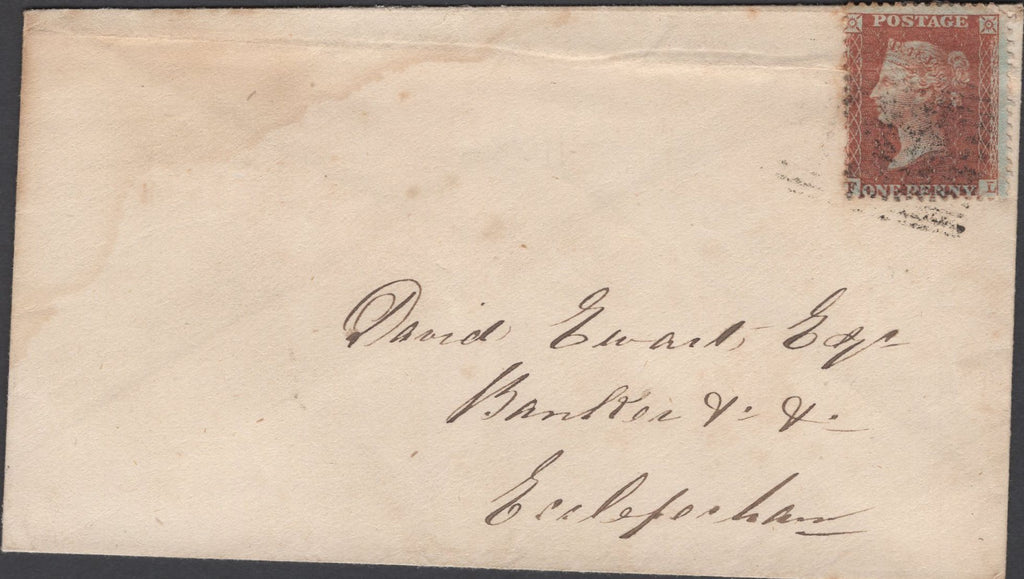 POSTAGE
F ONE PENNY L
David Ewart, Esqr
Banker &. &.
Ecclefechan